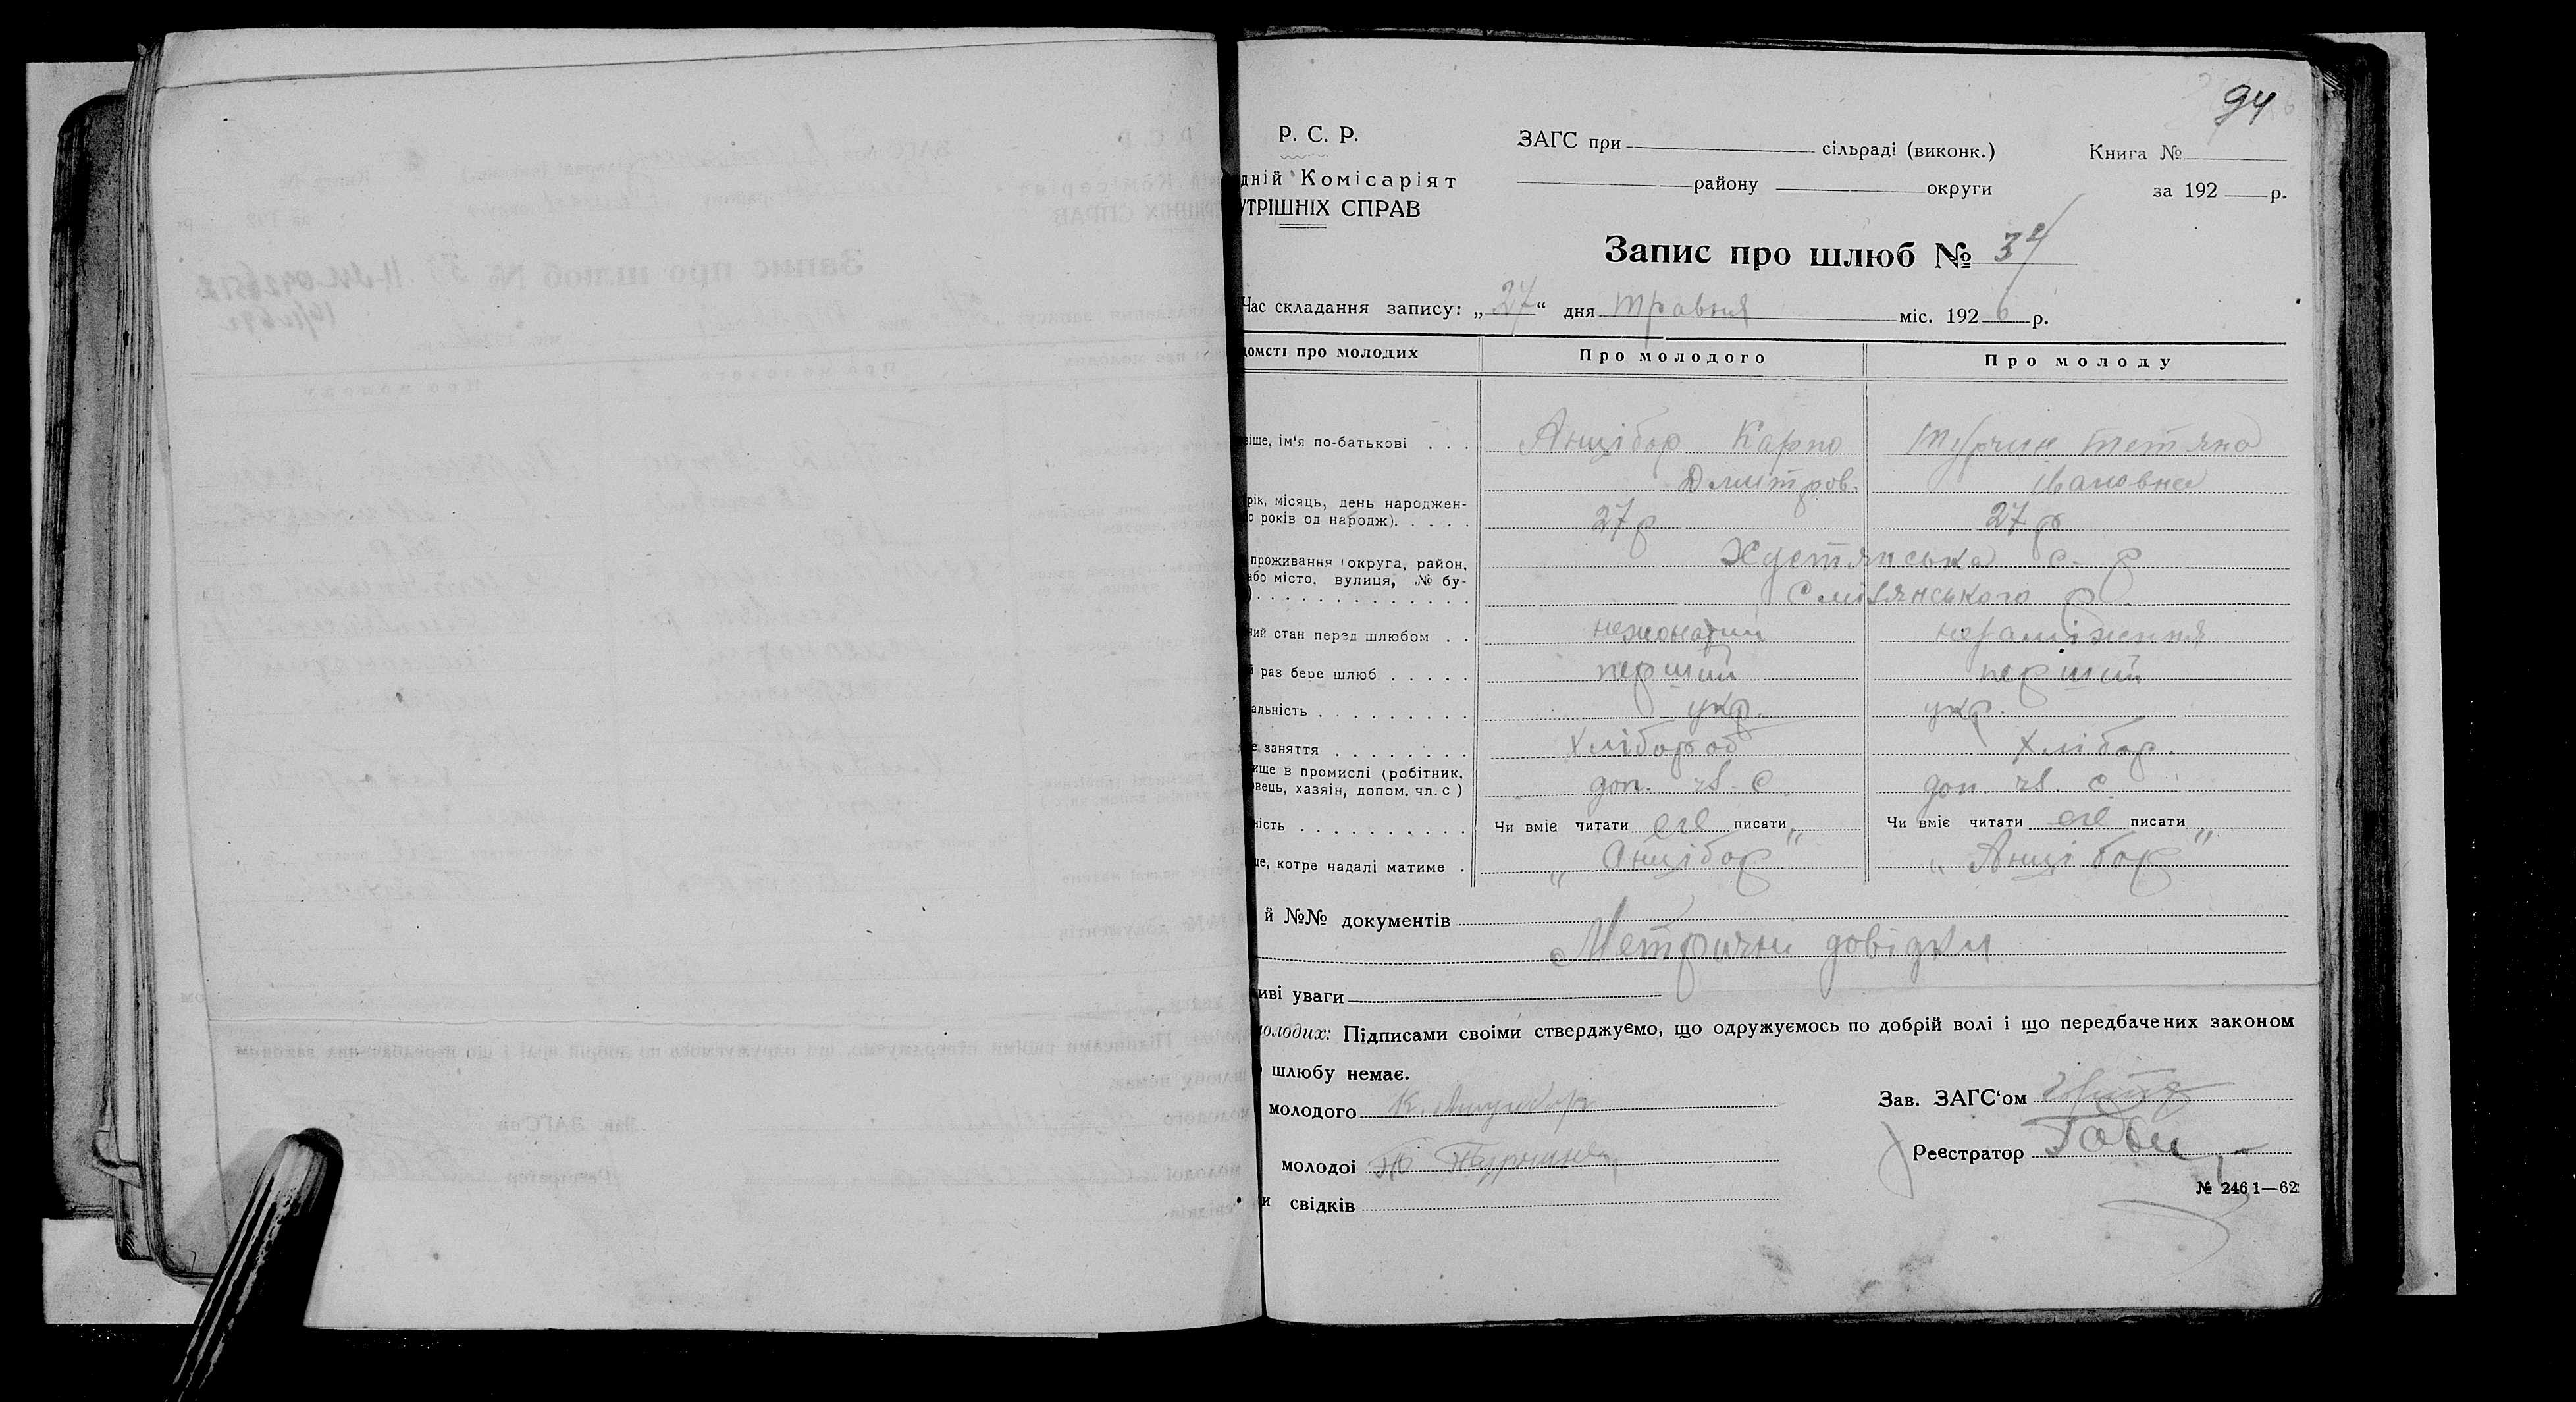 94
Р. С. Р.
ЗАГС при сільраді (виконк.)
Книга №
дній Комісаріят
району округи
за 192 р.
УТРІШНІХ СПРАВ
Запис про шлюб № 34
Час складання запису: „27“ дня травня міс. 1926 р.
домсті про молодих
Про молодого
Про молоду
віще, ім'я по-батькові . . .
Анцібор Карпо
Турчин Тетяна
Дмитров.
Івановна
рік, місяць, день народжен-
о років од народж). . . . .
27 р
27 р
проживання (округа, район,
або місто, вулиця, № бу-
) . . . . . . . . . . . . .
Хустянська с. р
Смілянського р
ний стан перед шлюбом . .
неженатий
незаміжня
й раз бере шлюб . . . . .
перший
перший
альність . . . . . . . . .
укр.
укр.
е заняття . . . . . . . .
Хлібороб
Хлібор.
ище в промислі (робітник,
вець, хазяїн, допом. чл. с )
доп. чл. с.
доп. чл. с.
ність . . . . . . . . . .
Чи вміє читати писати „
Чи вміє читати писати „
ще, котре надалі матиме .
„Анцібор“
„Анцібор“
й №№ документів
Метричні довідки
иві уваги
молодих: Підписами своїми стверджуємо, що одружуємось по добрій волі і що передбачених законом
шлюбу немає.
молодого К. Анцибор
Зав. ЗАГС'ом
молодоі Т Турчина
Реєстратор
и свідків
№ 2461—62